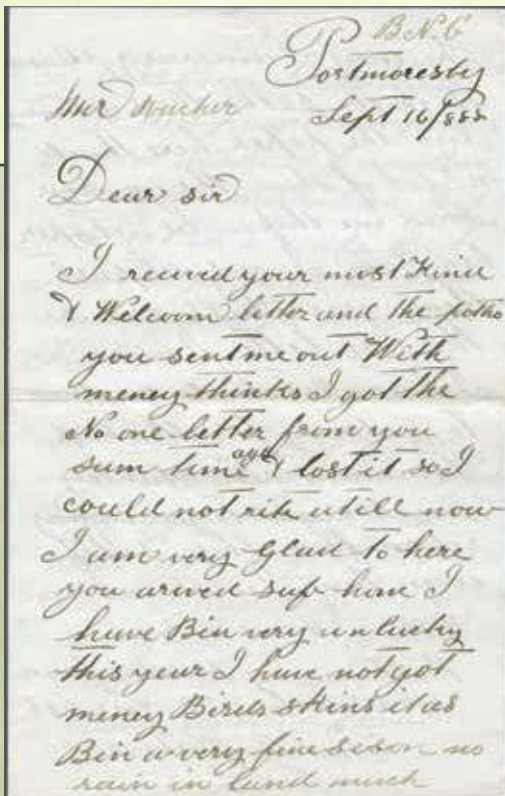 B.N.G
Portmoresby
Sept 16/888
Dear sir
I receved your most Kind
& Welcom letter and the potho
you sent me out With
meney thinks I got the
No one letter from you
sum time ago & lost it so I
could not rite utill now
I am very Glad to here
you arived saf home I
have Bin very unlucky
this year I have not got
meney Birds skins it as
Bin a very fine seson no
rain in land much